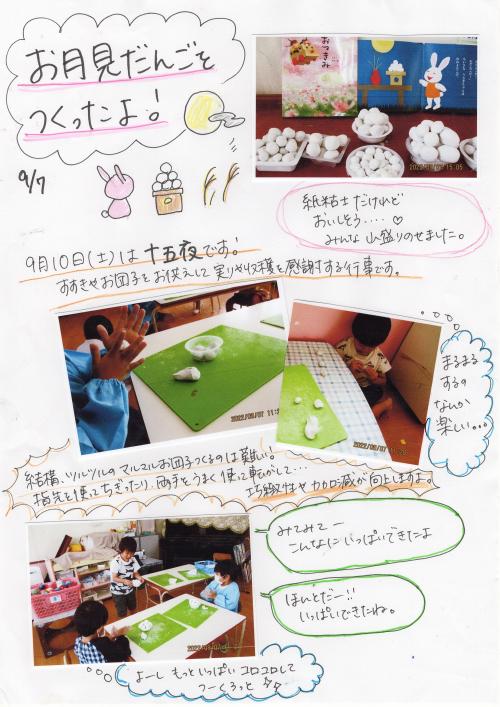 お月見だんごを
つくったよ!
9/7
おつきみ
2022/09/07 15:05
紙粘土だけれど
おいしそう....♡
みんな山盛りのせました。
9月10日(土)は十五夜です!
すすきやお団子をお供えして実りや収穫を感謝する行事です。
2022/09/07 11:
2022/09/07
まるまる
するの
なんか
楽しい...
結構、ツルツルのマルマルお団子つくるのは難しい。
指先を使ってちぎったり、両手をうまく使って転がして...
巧緻性や力加減が向上しますよ。
みてみてー
こんなにいっぱいできたよ
ほんとだー!!
いっぱいできたね。
よーし もっといっぱいコロコロして
つーくろっと